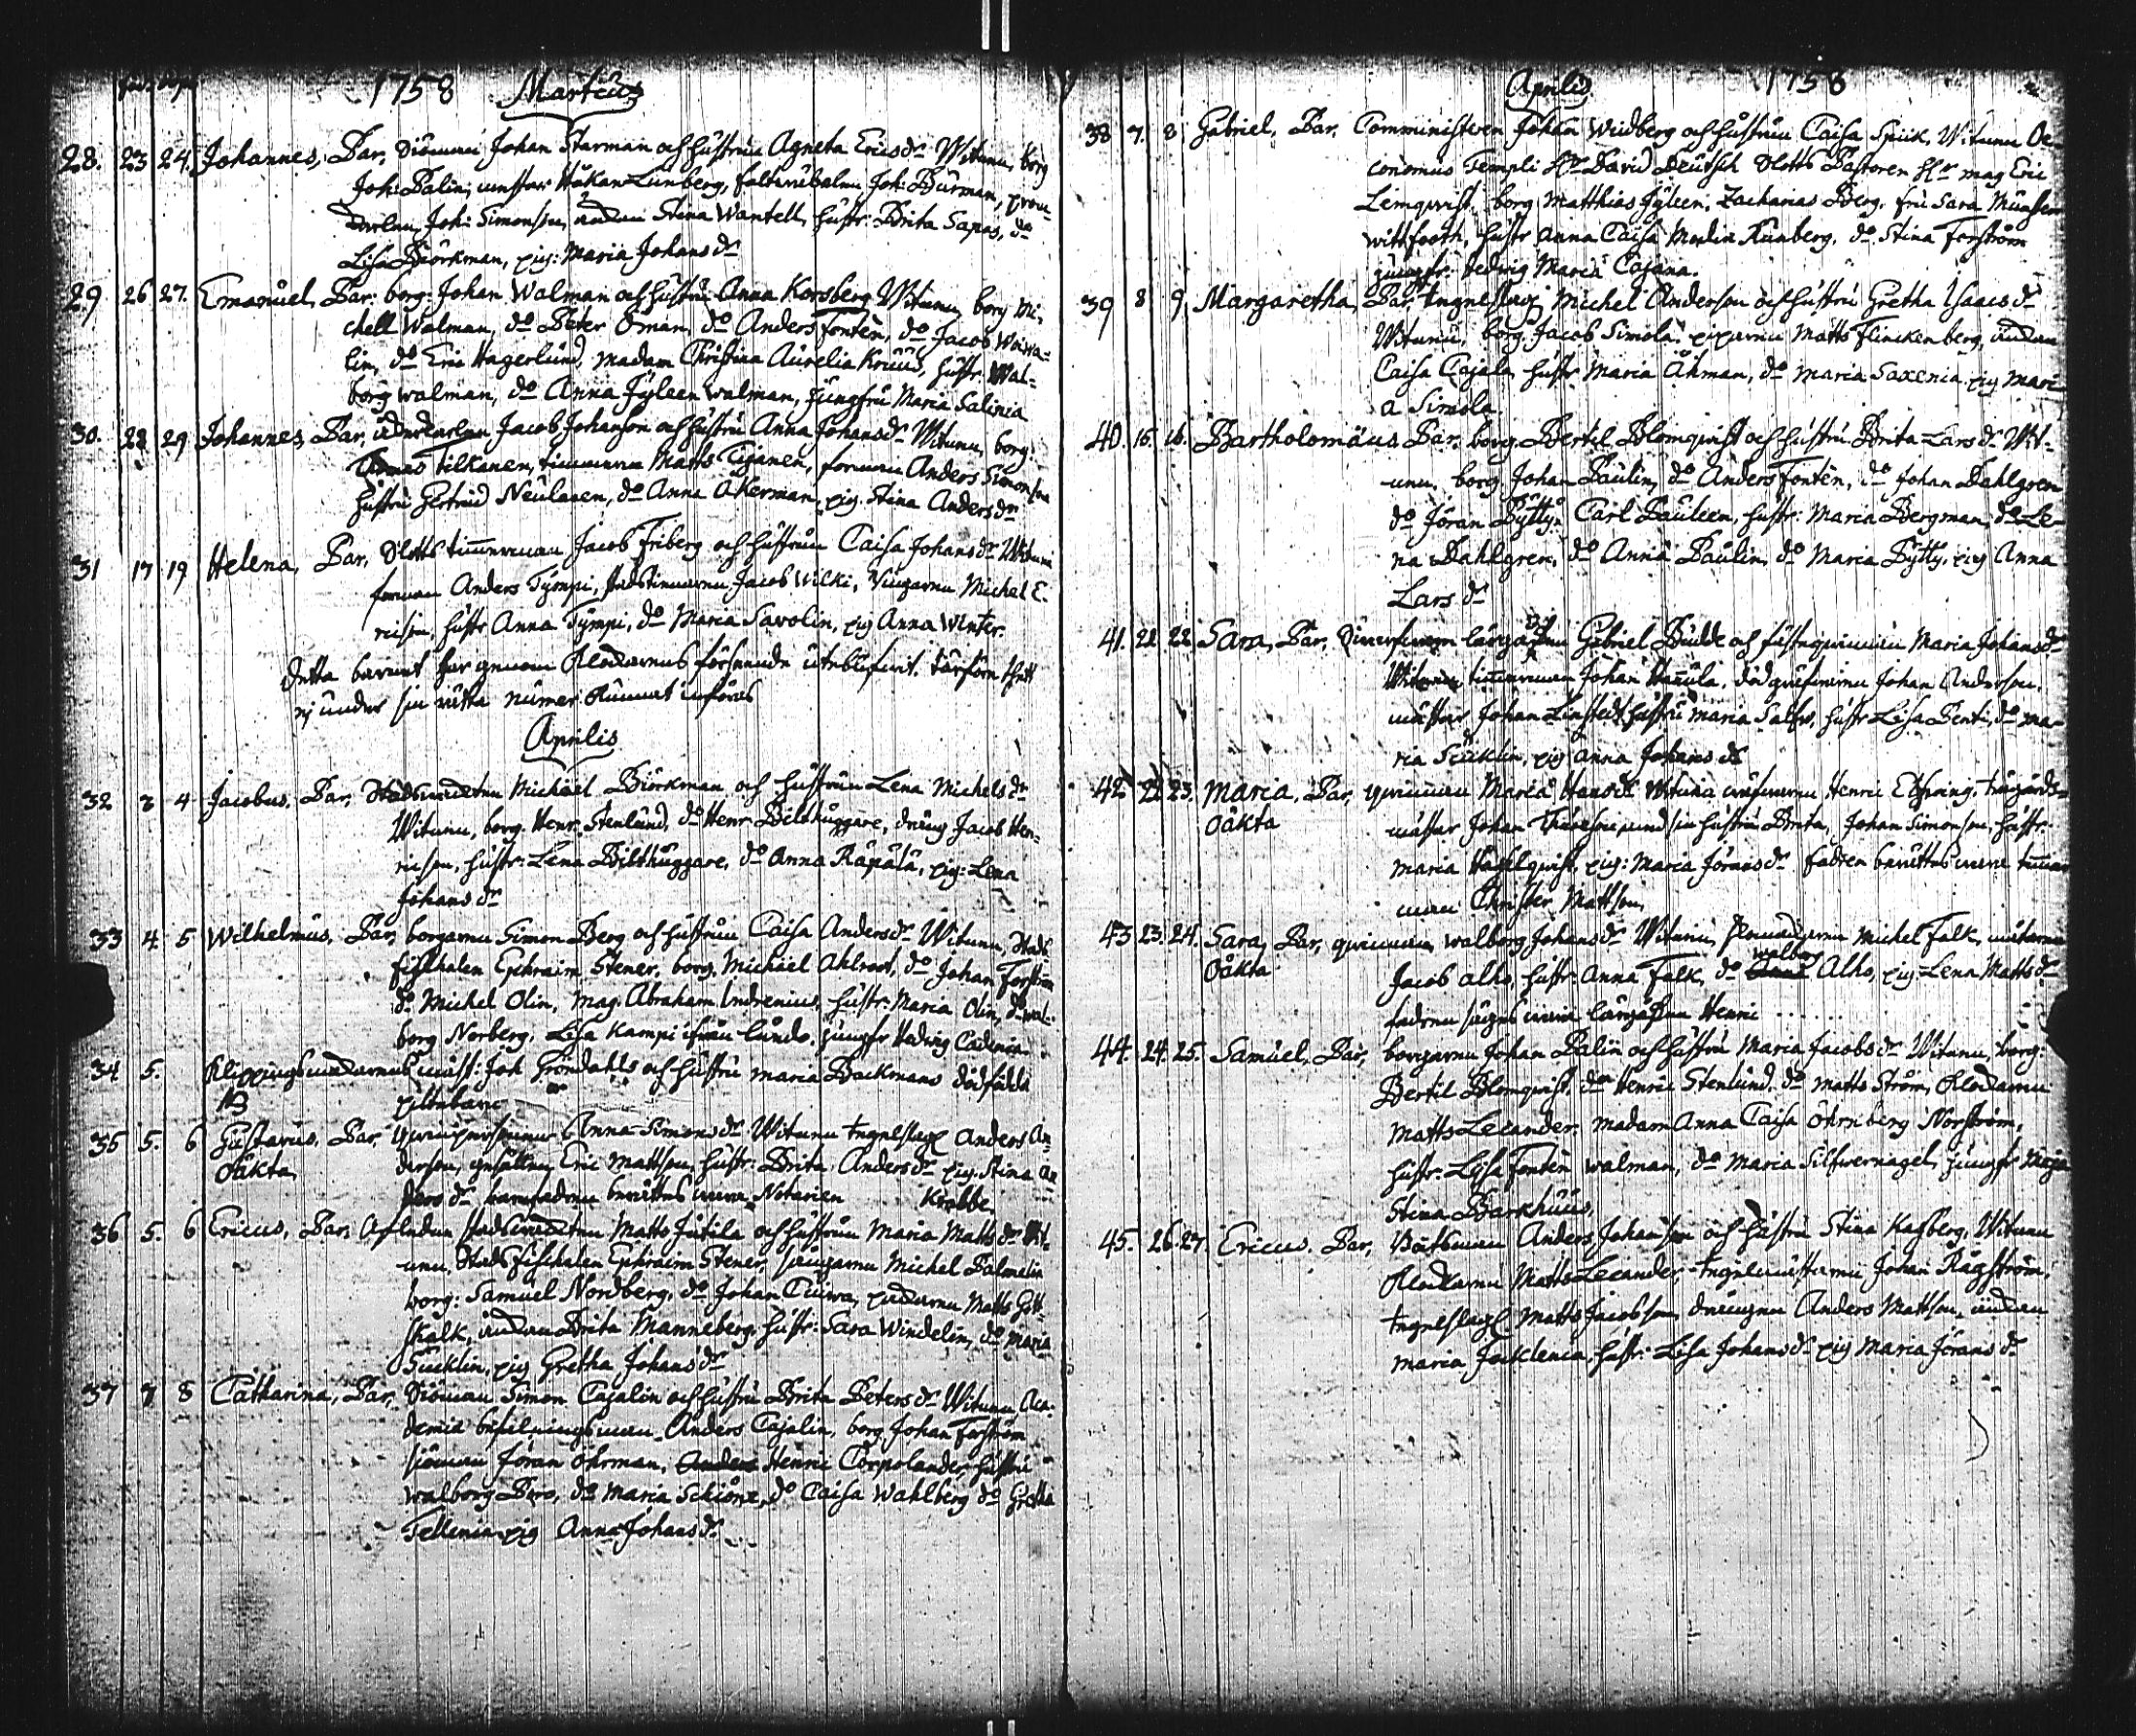 föd. döpt
1758 Martius
28. 23 24. Johannes, Par. Siöman Johan Starman och hustrun Agneta Ericsdr Wittnen, borg
Joh: Palin, Håkan Lünberg, Joh: Burman,
Joh: Simonson, Änkan Stina Wantell, hustr: Brita Sapas, do
Lisa Biörkman, pig: Maria Johansdr
29 26 27. Emanuel, Par: borg: Johan Walman och hustru Anna Korsberg Wittnen, borg Mi-
chell Walman, do Peter Öman, do Anders Fontèn, do Jacob
lin, do Eric Hagerlund, Madam Christina Aurelia Kruus, hustr. Wal-
borg Walman, do Anna Jÿleen Walman, Jungfru Maria Salinia
30. 28 29 Johannes, Par. Jacob Johanson och hustru Anna Johansdr Wittnen, borg:
Thomas Tilkanen, timmerman Matts Tiganen, forman Anders Simonson
hustru Gertrud Neulanen, do Anna Åkerman, pig. Stina Andersdr
31 17 19 Helena, Par. Slotts timmerman Jacob Friberg och hustrun Caisa Johansdr Wittnen
forman Anders Tÿmpi, Jacob Wilki, Michel E-
ricson, hustr Anna Tÿmpi, do Maria Savolin, pig Anna Winter.
Detta barnet har genom Klockarens försummelse uteblifwit,
ej under sin rätta numer kunnat införas
Aprilis
32 3 4 Jacobus, Par. Michäel Biörkman och hustrun Lena Michelsdr
Wittnen, borg. Henr. Stenlund, do Henr Bilthuggare, dräng Jacob Hen-
ricson, hustr: Lena Bilthuggare, do Anna Räpälä, pig: Lena
Johansdr
33 4. 5 Wilhelmus, Par, borgaren Simon Berg och hustrun Caisa Andersdr Wittnen, Stads
fiskalen Ephraim Stener, borg. Michäel Ahlroot, do Johan Forström
do Michel Olin, Mag. Abraham Indrenius, hustr: Maria Olin, do Wal-
borg Norberg, Lisa Kampi ifrån Lundo. jungfr Hedvig Cadenia.
34 5. Joh Gröndahls och hustru Maria Backmans dödfödda
NB
35 5. 6 Gustavus, Par, qwinspersonen Anna Simonsdr Wittnen Anders An-
Oäkta derson, gesällen Eric Mattson, hustr: Brita Andersdr pig. Stina An-
dersdr barnfadren berättas wara Notarien Krabbe
36 5. 6 Ericus, Par. Matts Jutila och hustrun Maria Mattsdr Wit-
nen, Stads fiskalen Ephraim Stener, Michel Palmelin
borg: Samuel Nordberg, do Johan Matts Gott-
skalk, änkan Brita Manneberg, hustr: Sara Windelin, do Maria
Sucklin, pig Gretha Johansdr
37 7 8 Catharina, Par, Siöman Simon Cajalin och hustru Brita Petersdr Wittnen Aca-
demiæ Anders Cajalin, borg Johan Forström
siöman Jöran Öhrman, Anders Henric Corpolander, hustru
Walborg do Maria Schiöne, do Caisa Wahlberg do Gretha
Tellenia pig Anna Johansdr
Aprilis 1758
38 7. 8 Gabriel, Par. Comministern Johan Widberg och hustrun Caisa Spuk, Wittnen Oe-
conomus Templi Hr David Deutsch Slotts Pastoren Hr Mag Eric
Lemqvist, borg Matthias Jÿleen, Zacharias Berg, fru Sara
Wittfooth, hustr Anna Caisa Merlin Runberg, do Stina Forström
jungfr: Hedvig Maria Cajana.
39 8 9. Margaretha, Par. Michel Anderson och hustru Gretha Isaacsdr
Wittnen, borg. Jacob Simola, Matts Flinckenberg, änkan
Caisa Cajala, hustr Maria Åhman, do Maria Saxenia pig Mari-
a Simola
40. 15. 16. Bartholomäus Par. borg. Bertil Blomqvist och hustru Brita Larsdr Wit-
nen, borg. Johan Paulin, do Anders Fontèn, do Johan Dahlgren
do Jöran Pÿttÿ, Carl Pauleen, hustr: Maria Bergman, do Le-
na Dahlgren, do Anna Paulin, do Maria Pÿttÿ, pig Anna
Lars dr
41. 21 22 Sara, Par. Gabriel Budde och Maria Johansdr
Wittnen, timmerman Johan Haxula, dödgräfwaren Johan Anderson,
mästar Johan Linstedt, hustru Maria Salbo, hustr Lisa Penti, do Ma-
ria Sucklin, pig Anna Johansdr
42 22 23. Maria, Par, qwinnan Maria Hansdr Wittnen Henric Elfwing, trägårds-
Oäkta mästar Johan med sin hustru Brita, Johan Simonson, hustr:
Maria Hasselqvist, pig: Maria Jöransdr fadren berättas wara timer-
man Christer Mattson.
43 23. 24. Sara, Par, qwinnan Walborg Johansdr Wittnen, Michel Falk,
Oäkta Jacob Alho, hustr: Anna Falk, do Walborg Alho, pig: Lena Mattsdr
fadren säges wara Henric
44. 24. 25. Samuel, Par, borgaren Johan Palin och hustru Maria Jacobsdr Wittnen, borg:
Bertil Blomqvist, do Henric Stenlund, do Matts Ström, Klockaren
Matts Lecander, Madam Anna Caisa Öhrnberg Norström,
hustr: Lisa Fontèn Walman, do Maria Silfwernagel, jungfr Maja
Stina Barkhuus,
45. 26 27. Ericus, Par, Båtsman Anders Johanson och hustru Stina Kasberg, Wittnen
Klockaren Matts Lecander, Johan Rågström,
Matts Jacobson, drängen Anders Mattson, änkan
Maria Jacklenia, hustr: Lisa Johansdr pig Maria Jöransdr